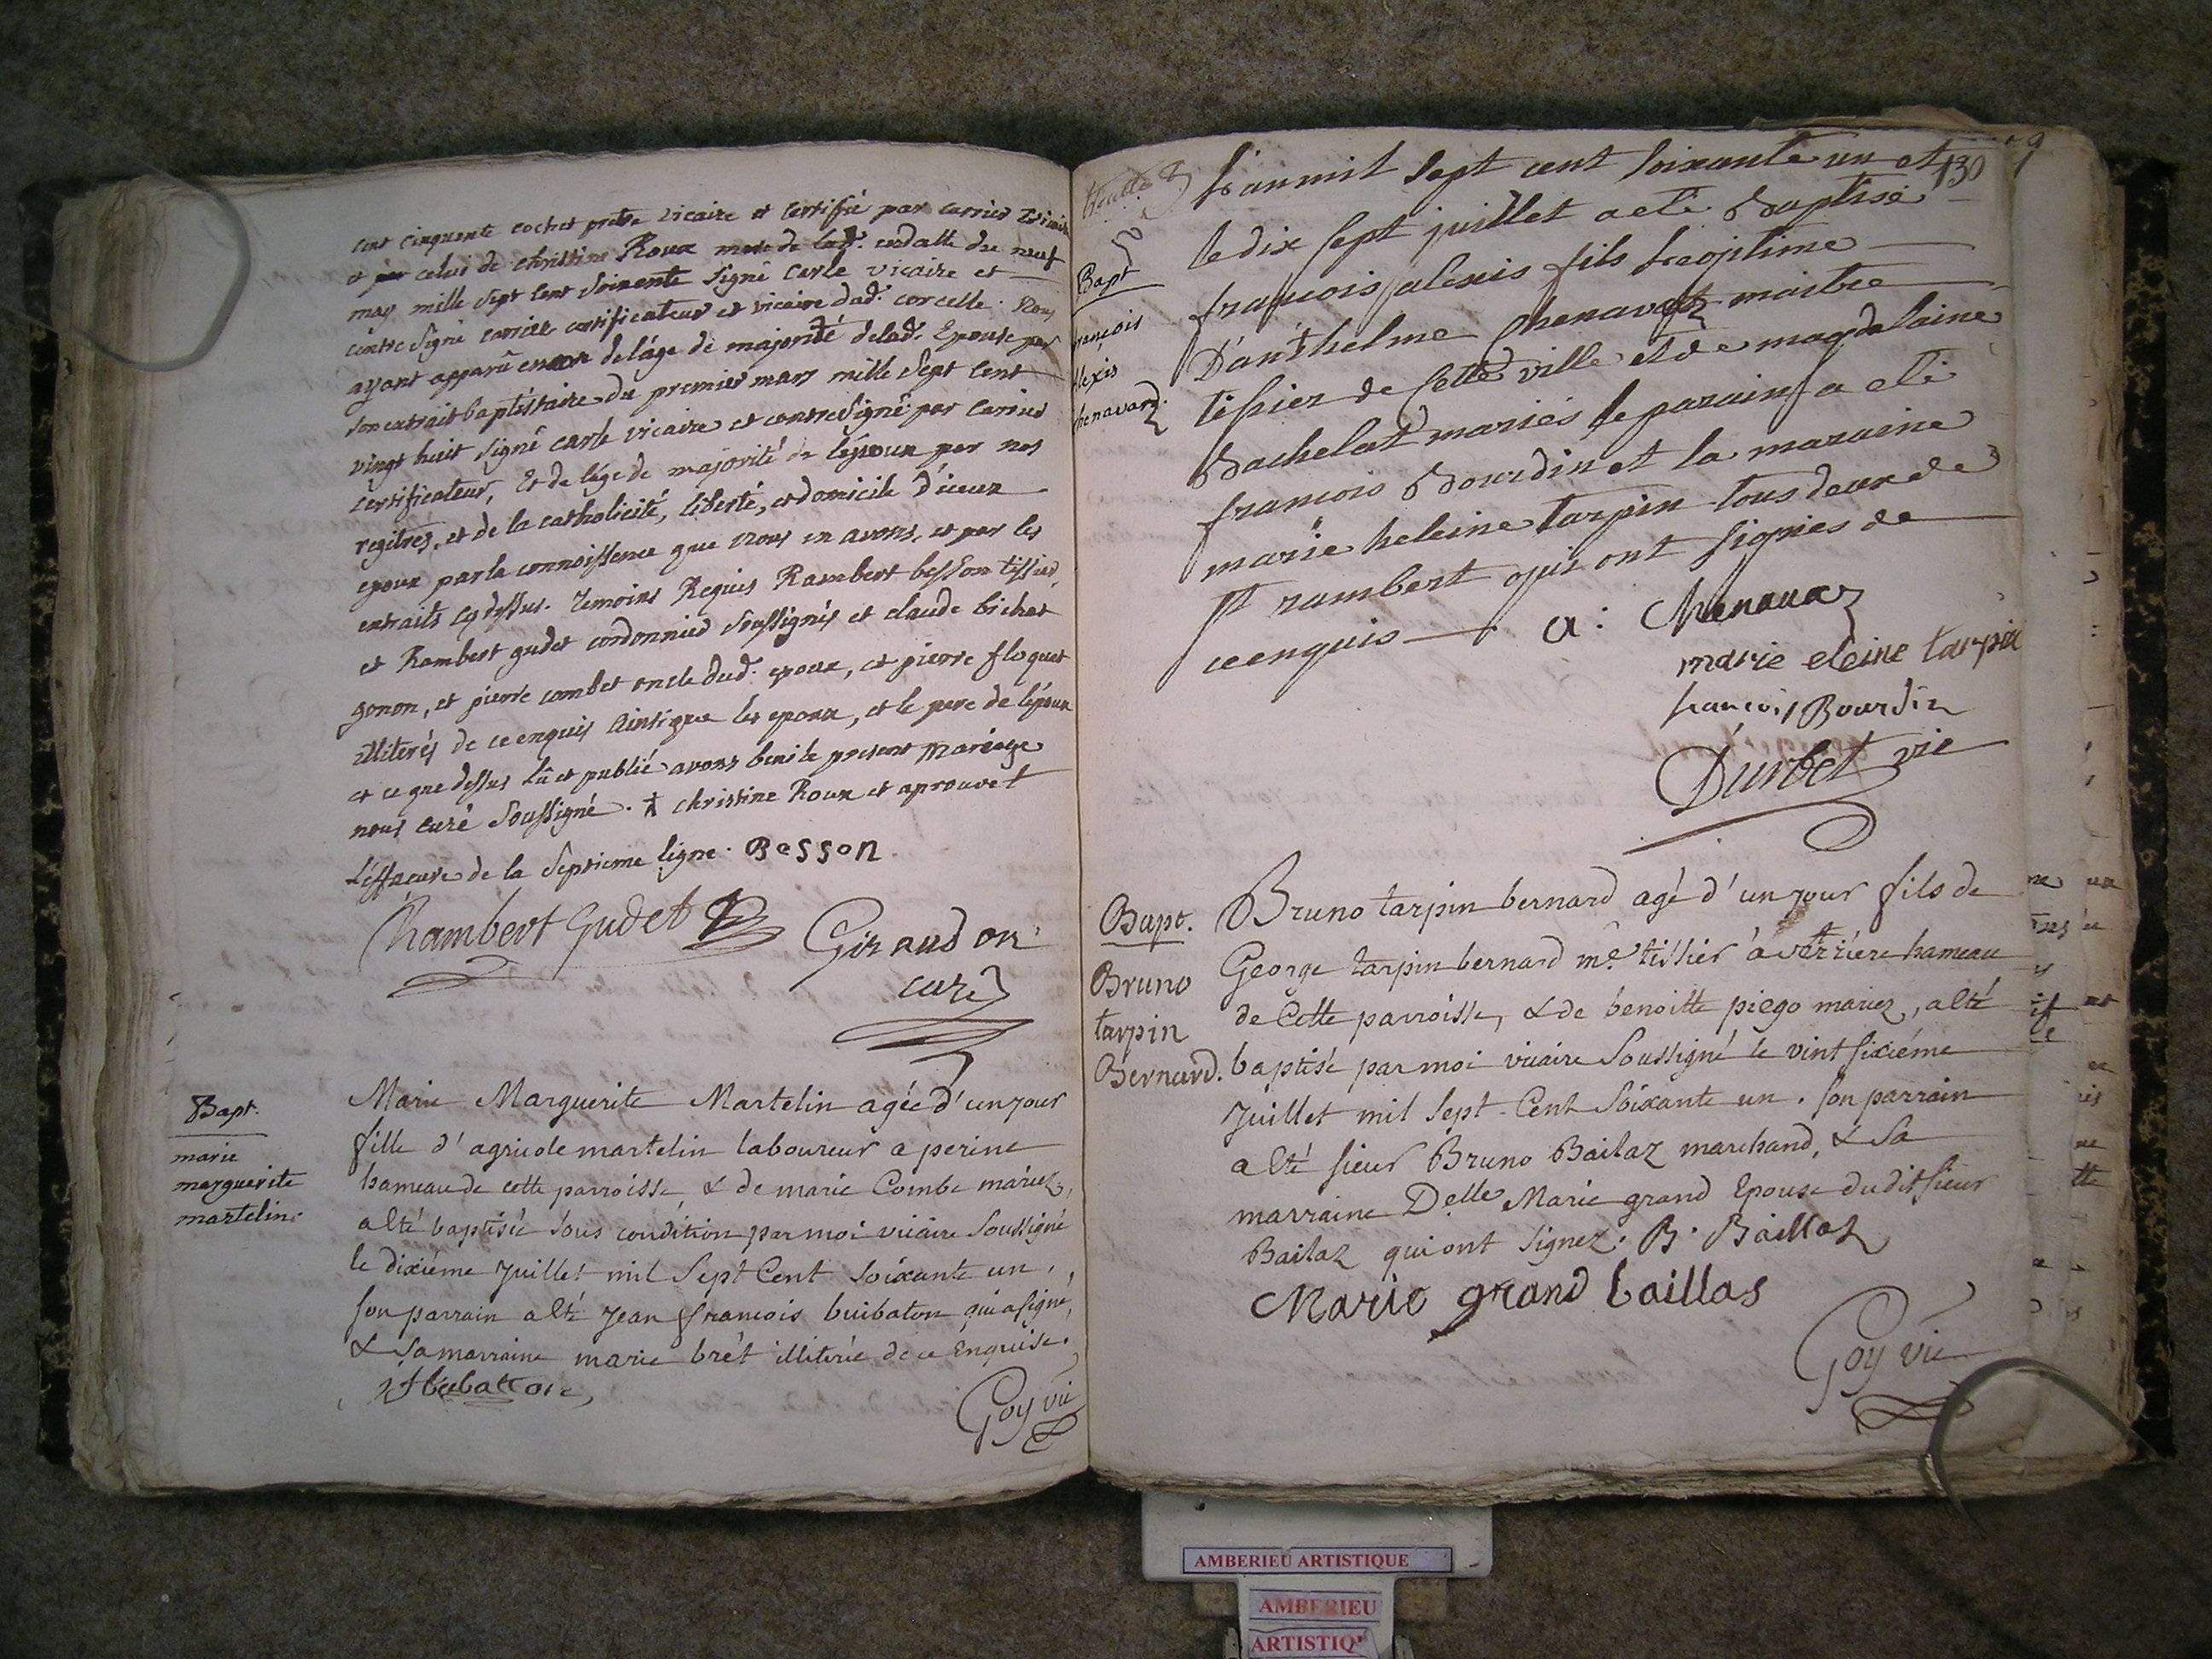 cent cinquente cochet pretre vicaire et certifié par carrier
et celui de christine Roux mere de lad. endatte du neuf
may mille sept cent soixente signé carle vicaire et
contre signé carrier certificateur et vicaire dad. corcelle. Nous
ayant apparû encore de l'age de majorité delad. Epouse par
son extrait baptistaire du premier mars mille sept cent
vingt huit signé carle vicaire et contresigné par carrier
certificateur, Et de l'age de majorité de l'époux par nos
regitres, et de la catholicité, liberté, et domicile d'iceux
epoux par la connoissence que nous en avons, et par les
extraits cy dessus. Temoins Requis Rambert besson tissier,
et Rambert gudet cordonnier soussignés et claude bichet
gonon, et pierre combet oncle dud. epoux, et pierre floquet
illiterés de ce enquis ainsi que les epoux, et le pere de l'époux
et ce que dessus lû et publié avons beni le present mariage
nous curé soussigné. christine Roux et aprouvet
l'effacure de la septieme ligne. Besson
Rambert Gudet
Giraud on
curé
Bapt.
marie
marguerite
martelin.
Marie Marguerite Martelin agée d'un jour
fille d'agricole martelin laboureur a perine
hameau de cette parroisse & de marie Combe mariez,
a été baptisée sous condition par moi vicaire soussigné
le dixiéme Juillet mil sept Cent soixante un,
son parrain a été jean francois buibaton qui a signé,
& sa marraine marie brét illiterée de ce Enquise.
Goy vic
130
L'an mil sept cent soixante un et
le dix sept juillet a eté Baptisé
francois alexis fils legitime
D'anthelme Chenavaz maitre
tissier de cette ville et de magdelaine
Bachelat mariés le parain a eté
francois Bourdin et la maraine
marie heleine tarpin tous deux de
St rambert qui ont signés de
ce enquis
Bapt
françois
alexis
chenavard.
a: Chenavaz
marie eleine tarpin
francois Bourdin
Durbet vic
Bapt.
Bruno
tarpin
Bernard.
Bruno tarpin bernard agé d'un jour fils de
George tarpin bernard me. tissier à verriere hameau
de Cette parroisse, & de benoitte piego mariez, a été
baptisé par moi vicaire soussigné le vint sixiéme
Juillet mil sept Cent soixante un. son parrain
a été sieur Bruno Bailaz marchand, & sa
marraine Delle Marie grand Epouse du dit sieur
Bailaz qui ont signez. B. Baillaz
Marie grand baillas
Goy vic
AMBERIEU ARTISTIQUE
AMBERIEU
ARTISTIQ